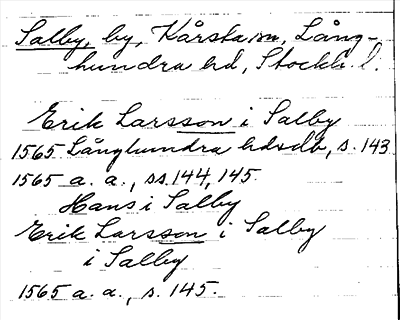 Salby, by, Kårsta sn, Lång-
hundra hd, Stockh. l.
Erik Larsson i Salby
1565 Långhundra hdsdb, s. 143
1565 a. a., ss. 144, 145.
Hans i Salby
Erik Larsson i Salby
i Salby
1565 a. a., s. 145.